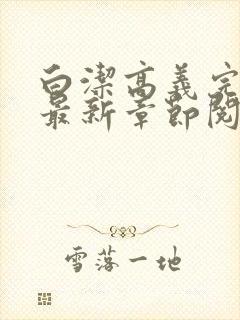 白潔高義完
最新章節閱
雪落一地